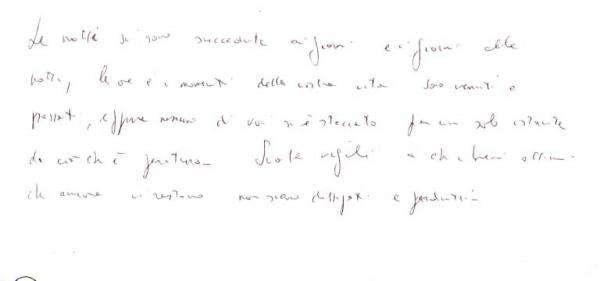 Le notti si sono succedute ai giorni e i giorni alle
notti, le ore e i momenti della vostra vita sono venuti e
passati, eppure nessuno di voi si è staccato per un solo istante
da ciò che è perituro. Siate vigili a che i brevi attimi
che ancora vi restano non siano dissipati e perduti.